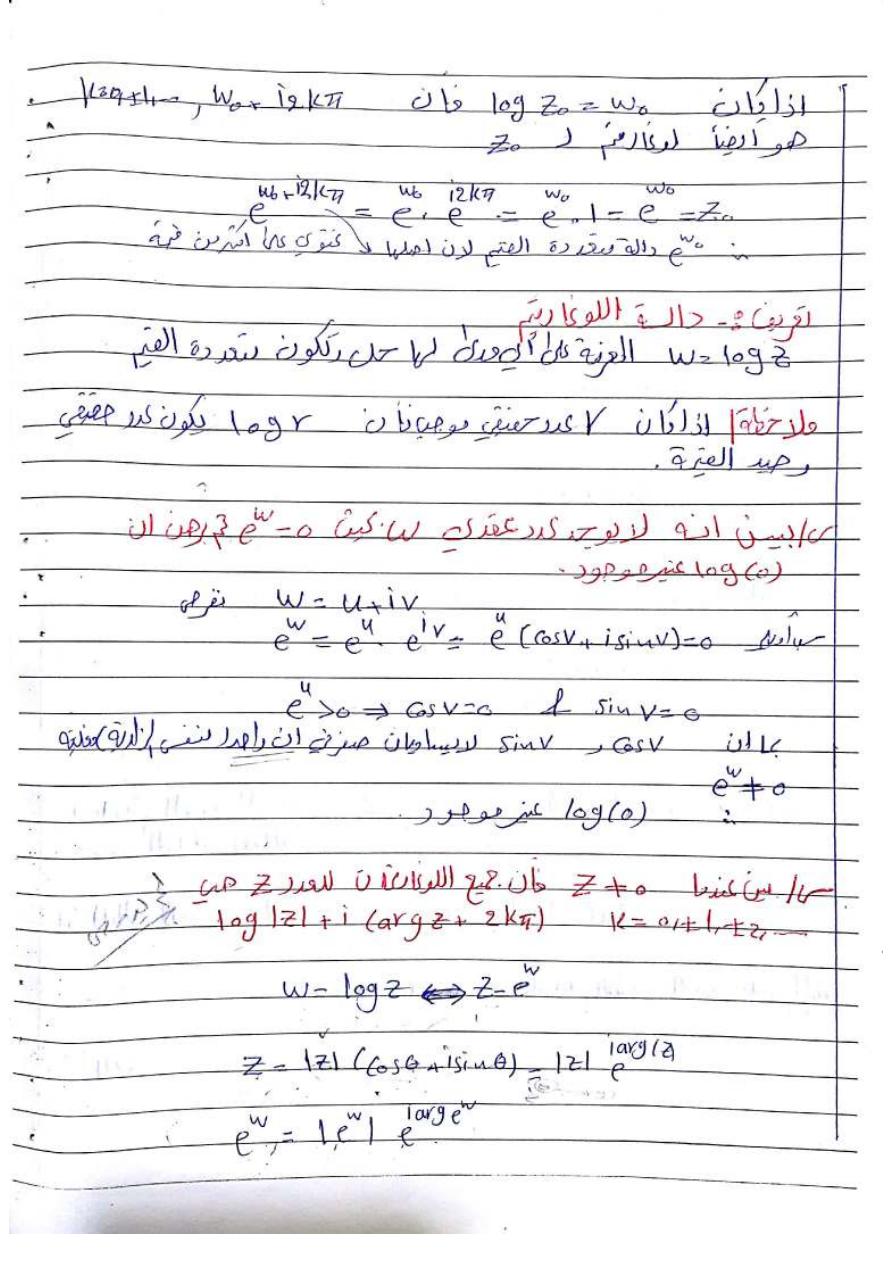 اذا كان log z₀ = w₀ فان w₀ + i2kπ , k=0,±1,...
هو ايضاً لوغارتم لـ z₀
e^{w₀+i2kπ} = e^{w₀} . e^{i2kπ} = e^{w₀} . 1 = e^{w₀} = z₀
∴ e^{w₀} دالة متعددة القيم لان اصلها لا تحتوي على اكثر من قيمة
تعريف :- دالة اللوغاريتم
w = log z المعرفة على أي مدى لها حل وتكون متعددة القيم
ملاحظة/ اذا كان r عدد حقيقي موجب فان log r يكون عدد حقيقي
وحيد القيمة .
س/ بين انه لا يوجد عدد عقدي w بحيث e^w = 0 ثم برهن ان
log(0) غير موجود .
نفرض w = u+iv
e^w = e^u . e^{iv} = e^u (cos v + i sin v) = 0
e^u > 0 ⇒ cos v = 0 & sin v = 0
بما ان cos v و sin v لا يساويان صفر في ان واحد لنفس الزاوية فعليه
e^w ≠ 0
∴ log(0) غير موجود .
س/ بين عندما z ≠ 0 فان جميع اللوغارتمات للعدد z هي
log |z| + i (arg z + 2kπ) k = 0,±1,±2,....
w = log z ⟺ z = e^w
z = |z| (cos θ + i sin θ) = |z| e^{i arg(z)}
e^w = |e^w| e^{i arg e^w}